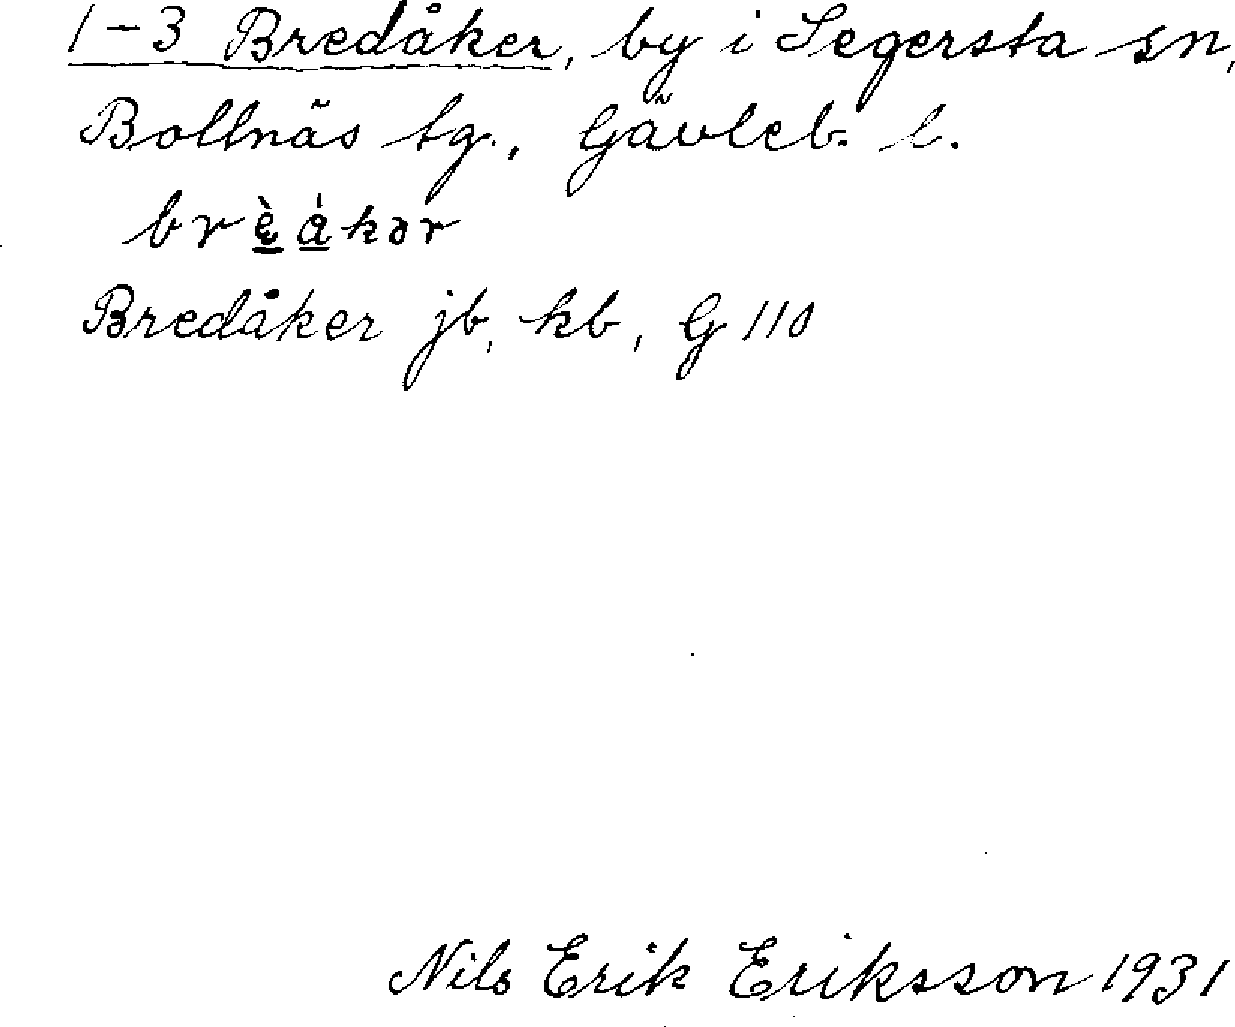 1-3 Bredåker, by i Segersta sn,
Bollnäs tg., Gävleb. l.
brè̲ǻ̲kər
Bredåker jb, kb, G 110
Nils Erik Eriksson 1931